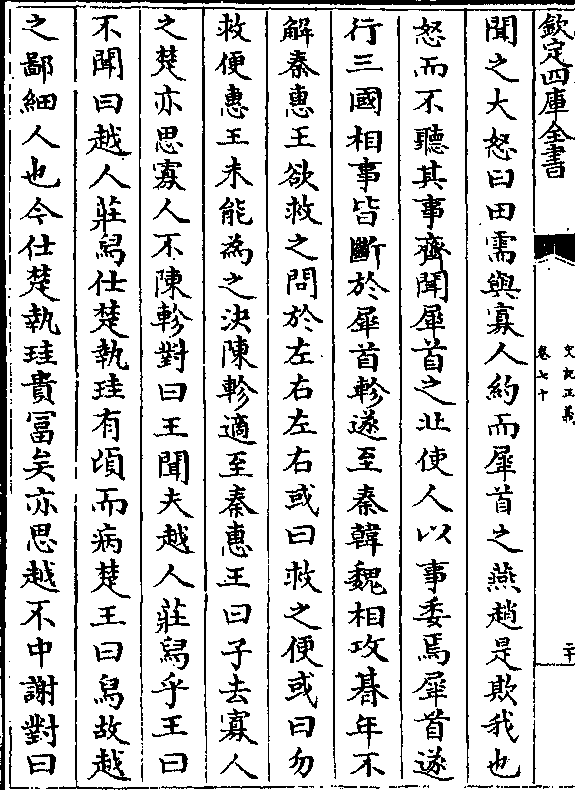 欽定四庫全書
史記正義
卷七十
二十
聞之大怒曰田需與寡人約而犀首之燕趙是欺我也
怒而不聽其事齊聞犀首之北使人以事委焉犀首遂
行三國相事皆斷於犀首軫遂至秦韓魏相攻朞年不
解秦惠王欲救之問於左右左右或曰救之便或曰勿
救便惠王未能為之決陳軫適至秦惠王曰子去寡人
之楚亦思寡人不陳軫對曰王聞夫越人莊舄乎王曰
不聞曰越人莊舄仕楚執珪有頃而病楚王曰舄故越
之鄙細人也今仕楚執珪貴冨矣亦思越不中謝對曰